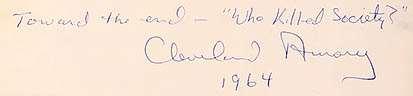 Toward the end — "Who Killed Society?"
Cleveland Amory
1964